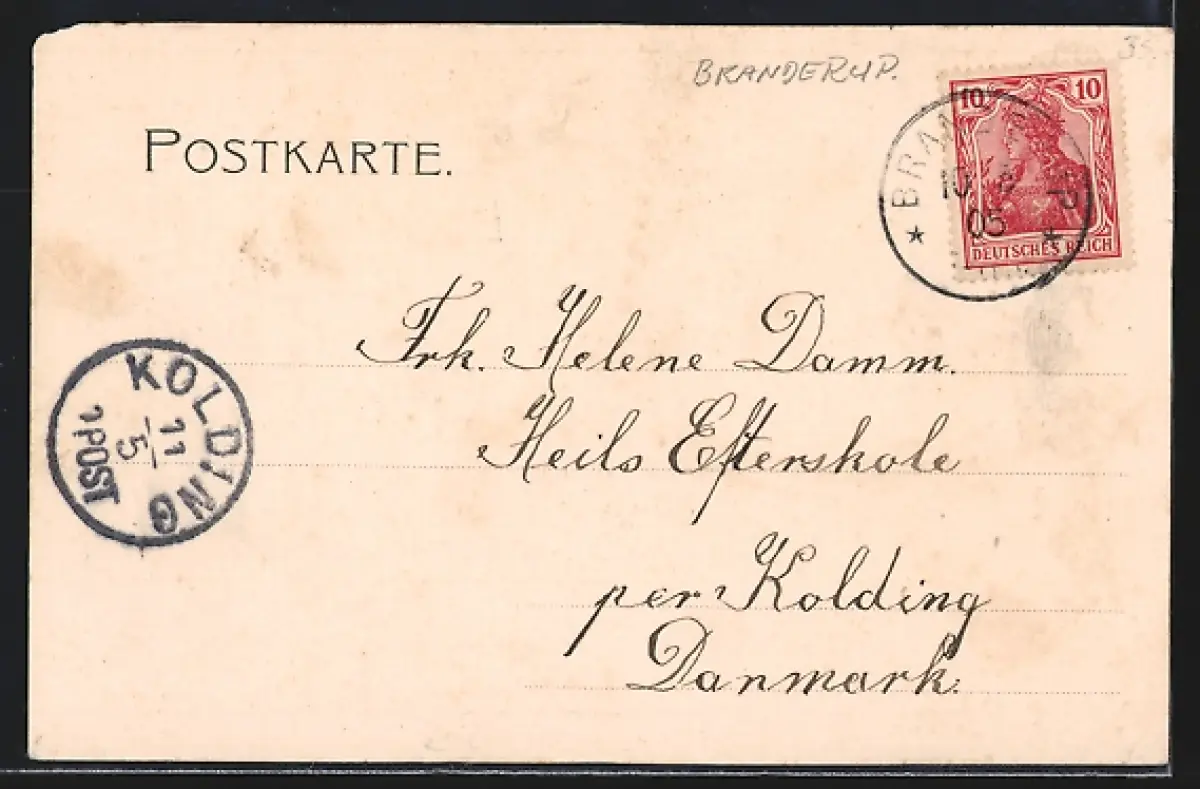 BRANDERUP.
35.
POSTKARTE.
10 10
DEUTSCHES REICH
BRANDERUP
10
05
Frk. Helene Damm.
Heils Efterskole
per Kolding
Danmark.
KOLDING
11
5
1 POST